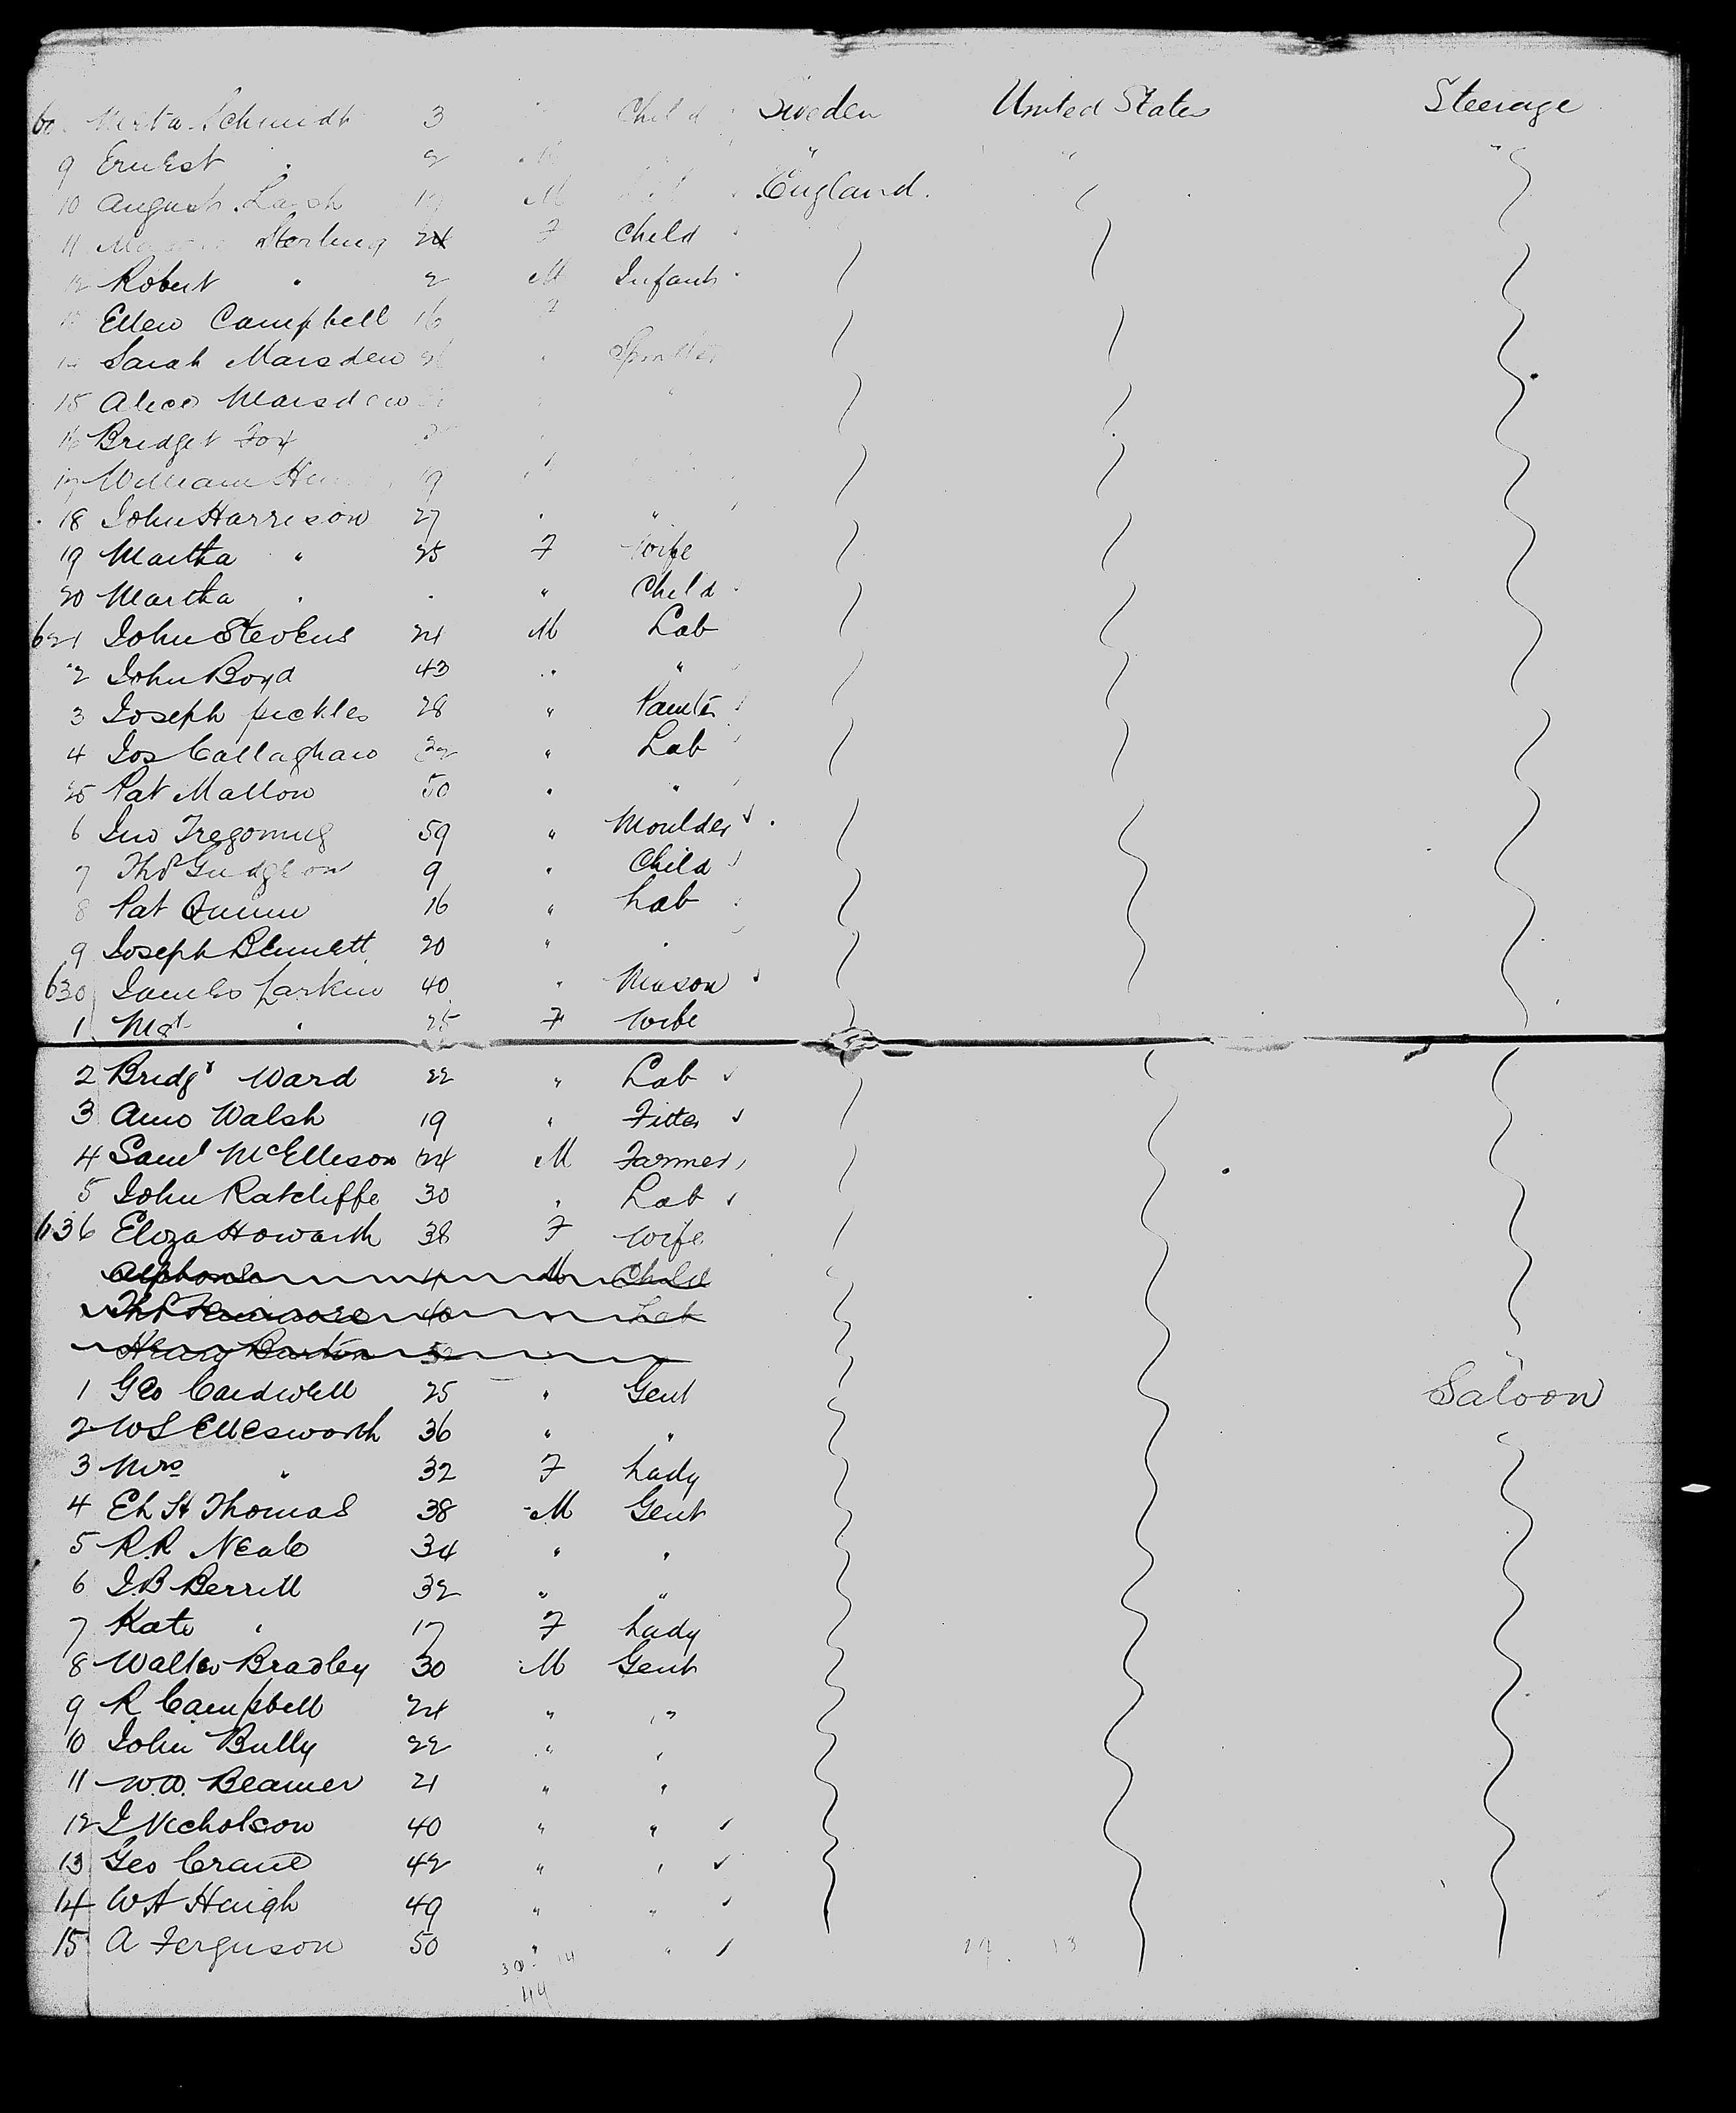 Schmidt 3 Child Sweden United States Steerage
9 Ernest " 2 M " " "
10 August 19 M England. "
11 Sterling 24 F Child
12 Robert " 2 M Infant
13 Ellen Campbell 16 F
14 Sarah Marsden Spinster
15 Alice Marsden "
16 Bridget Fox
17 William 19
18 John Harrison 27 " "
19 Martha " 25 F Wife
20 Martha " " " Child
621 John Stevens 24 M Lab
2 John Boyd 43 " "
3 Joseph pickles 28 " Painter
4 Jos Callaghan 32 " Lab
25 Pat Mallon 50 " "
6 Jno 59 " Moulder
7 Thos Gudgeon 9 " Child
8 Pat Quinn 16 " Lab
9 Joseph Bennett 20 " "
630 James Larkin 40 " Mason
1 Mgt " 25 F Wife
2 Bridgt Ward 22 " Lab
3 Ann Walsh 19 " Fitter
4 Saml McElleson 24 M Farmer
5 John Ratcliffe 30 " Lab
636 Eliza Howarth 38 F Wife
Alphonse 4 M Child
Thos 40 " Lab
Henry Burton
1 Geo Cardwell 25 " Gent Saloon
2 W S Ellesworth 36 " "
3 Mrs " 32 F Lady
4 Eh St Thomas 38 M Gent
5 R.R Neale 34 " "
6 J.B Berrill 32 " "
7 Kate " 17 F Lady
8 Walter Bradley 30 M Gent
9 R Campbell 24 " "
10 John Bully 22 " "
11 W.O. Beamer 21 " "
12 J Nicholson 40 " "
13 Geo Crane 42 " "
14 W H Haigh 49 " "
15 A Ferguson 50 " "
30 14
44